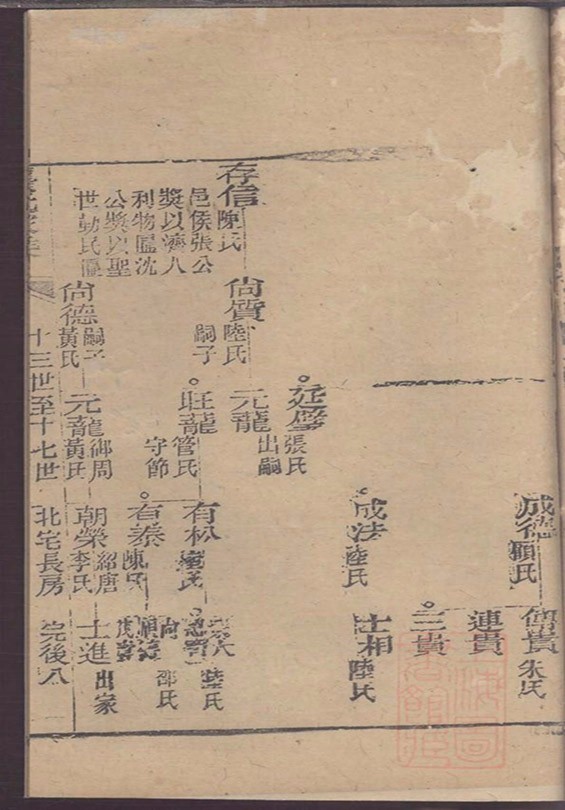 成德
顧氏
傳貴
朱氏
連貴
三貴
成法
陸氏
士相
陸氏
延璧
張氏
元龍
出嗣
存信
陳氏
邑侯張公
獎以濟人
利物匾沈
公獎以聖
世勤民匾
尚質
陸氏
嗣子
旺龍
管氏
守節
有松
陸氏
有泰
陳氏
邵氏
尚德
嗣子
黃氏
元龍
御周
黃氏
朝榮
紹唐
李氏
士進
出家
十三世至十七世
北宅長房
完後八